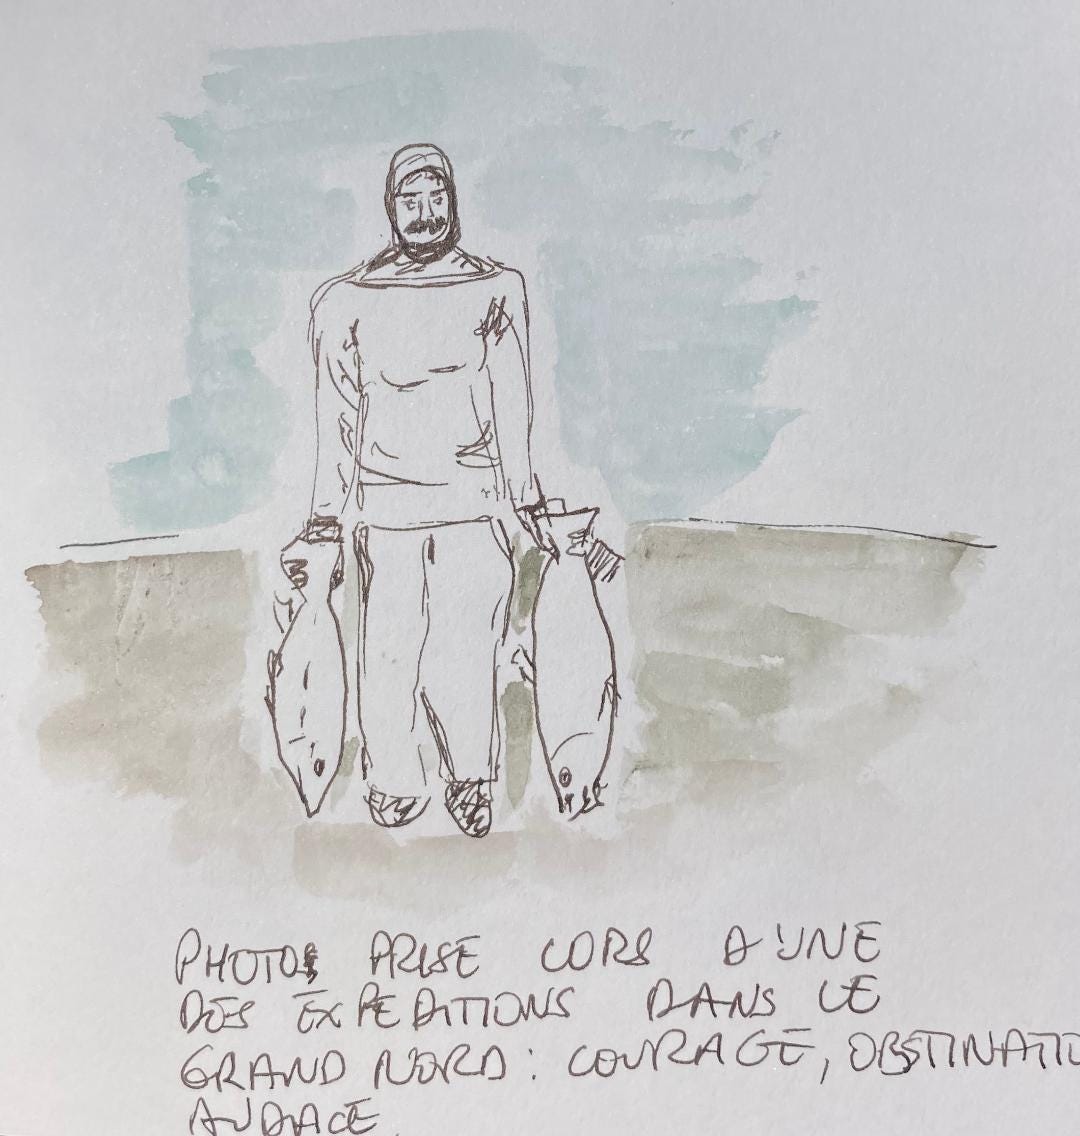 PHOTO PRISE LORS D'UNE
DES EXPEDITIONS DANS LE
GRAND NORD : COURAGE, OBSTINATIO
AUDACE.